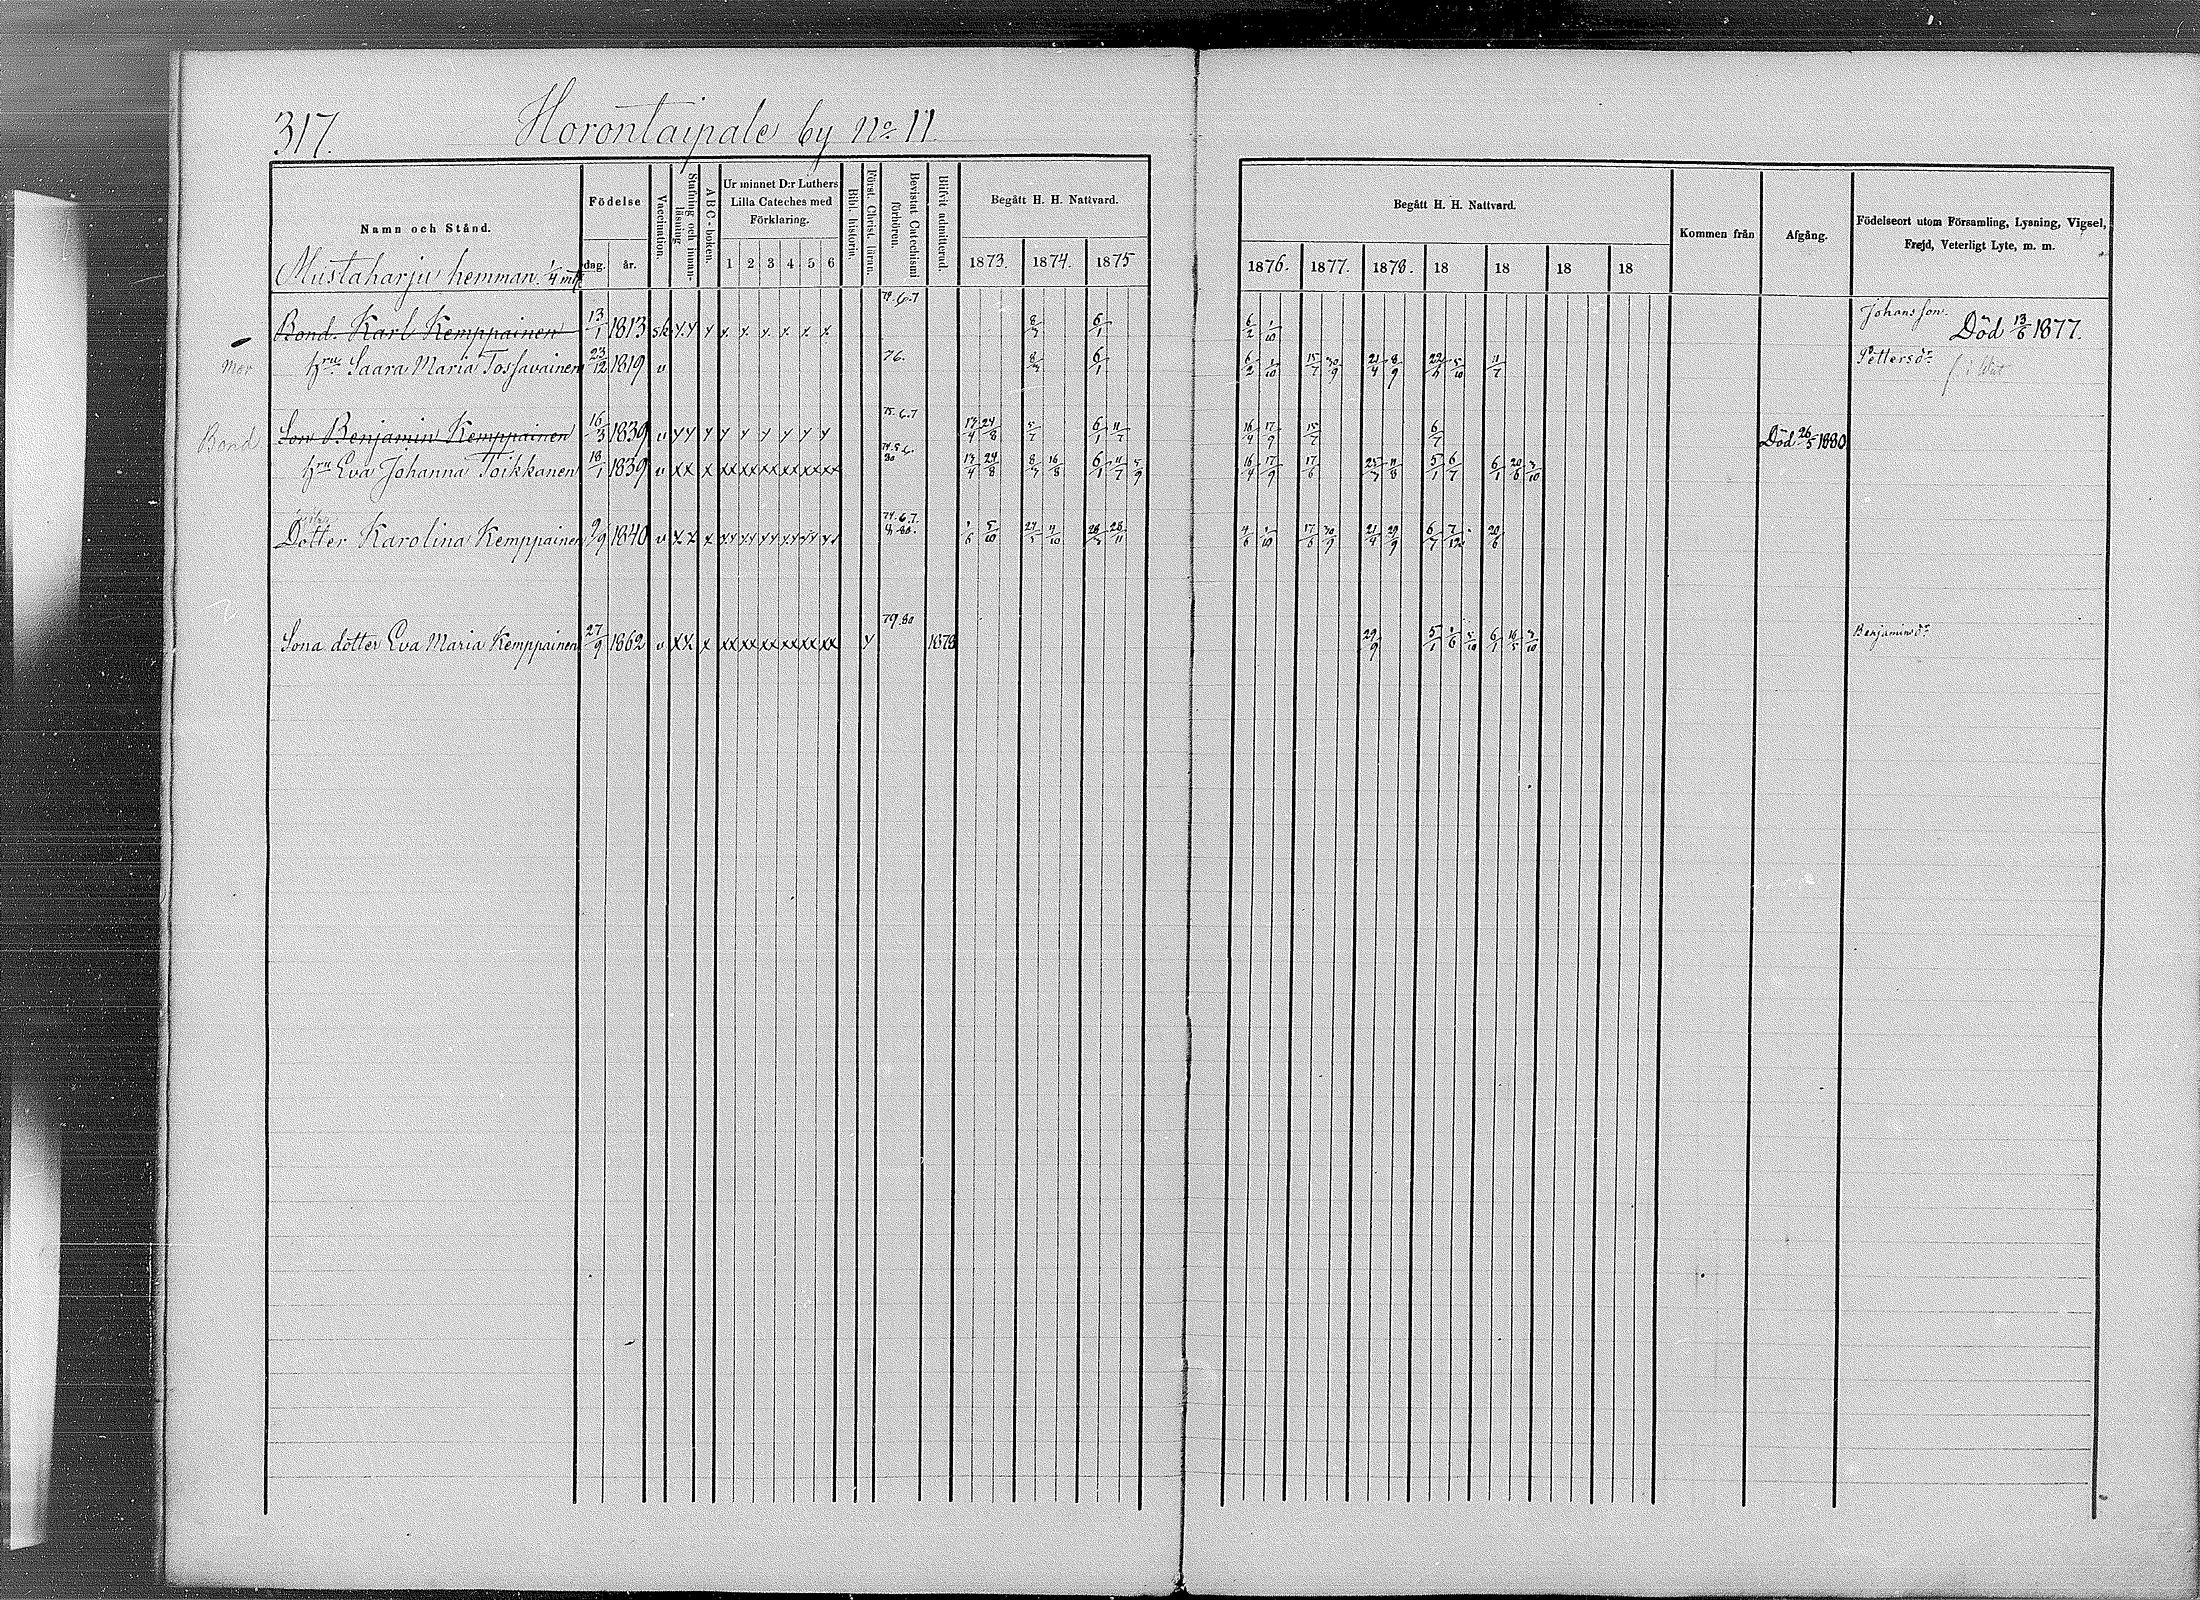 317. Horontaipale by No 11
Namn och Stånd.
Födelse
dag. år.
Vaccination.
Stafning och innanläsning
ABC-boken.
Ur minnet D:r Luthers Lilla Cateches med Förklaring.
1 2 3 4 5 6
Bibl. historia.
Först. Christ. läran.
Bevistat Catechismi förhören.
Blifvit admitterad.
Begått H. H. Nattvard.
1873. 1874. 1875
Begått H. H. Nattvard.
1876. 1877. 1878. 18 18 18 18
Kommen från
Afgång.
Födelseort utom Församling, Lysning, Vigsel, Frejd, Veterligt Lyte, m. m.
Mustaharju hemman 1/4 mtl
Bond. Karl Kemppainen 13/1 1813 sk y y y x x x x x x 6.7 8/3 6/1 6/2 1/10 Johansson. Död 13/6 1877.
hru Saara Maria Tossavainen 23/12 1819 v 76. 8/3 6/1 6/2 1/10 15/7 30/9 21/4 8/9 5/10 11/7 Pettersdr
Bond Son Benjamin Kemppainen 16/3 1839 v y y y y y y y y y 75.6.7 17/4 24/8 5/7 6/1 11/7 16/4 17/9 15/7 6/7 Död 26/5 1880
hru Eva Johanna Toikkanen 18/1 1839 v xx x xx xx xx xx xx xx 80 17/4 24/8 8/3 16/8 6/1 11/7 5/9 16/4 17/9 17/6 25/3 11/8 5/1 6/7 6/1 20/6 3/10
Dotter Karolina Kemppainen 9/9 1840 v xx x 74.6.7. 5/10 11/10 28/3 28/11 4/6 1/10 17/6 30/9 21/4 29/9 6/7 7/12 20/6
Sona dotter Eva Maria Kemppainen 27/9 1862 v xx x xx xx xx xx xx xx y 79.80 1878 29/9 5/1 1/6 5/10 6/1 16/5 3/10 Benjaminsdr